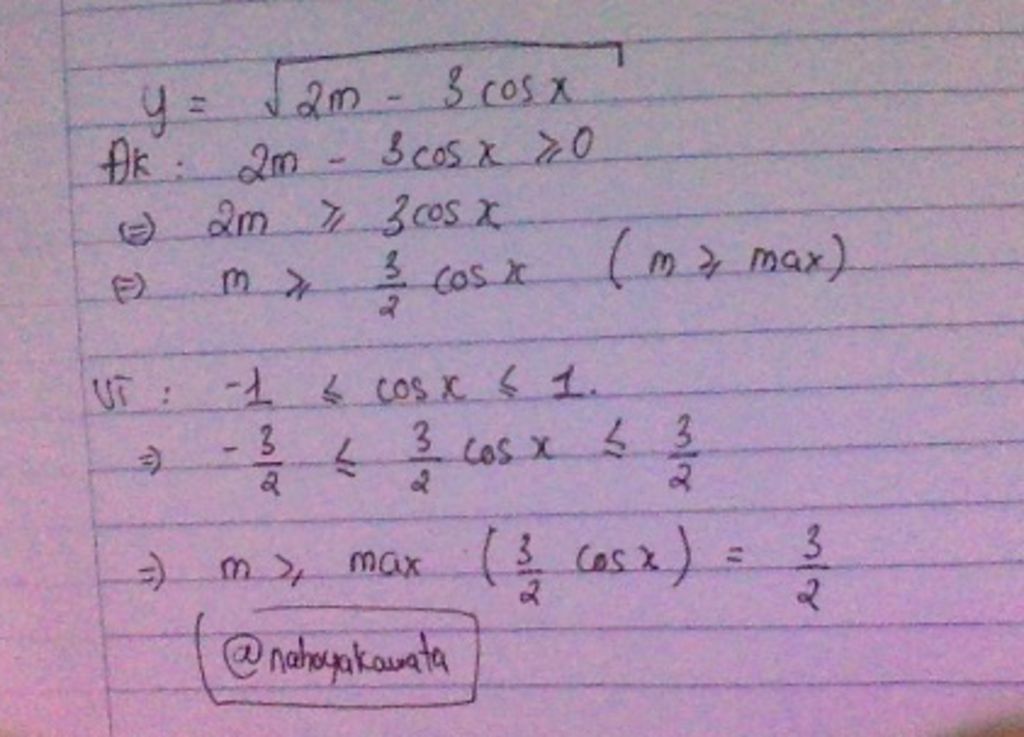 y = √(2m - 3 cos x)
ĐK : 2m - 3cos x ⩾ 0
⇔ 2m ⩾ 3cos x
⇔ m ⩾ 3/2 cos x (m ⩾ max)
VT : -1 ⩽ cos x ⩽ 1.
⇒ -3/2 ⩽ 3/2 cos x ⩽ 3/2
⇒ m ⩾ max (3/2 cos x) = 3/2
@nahoyakawata